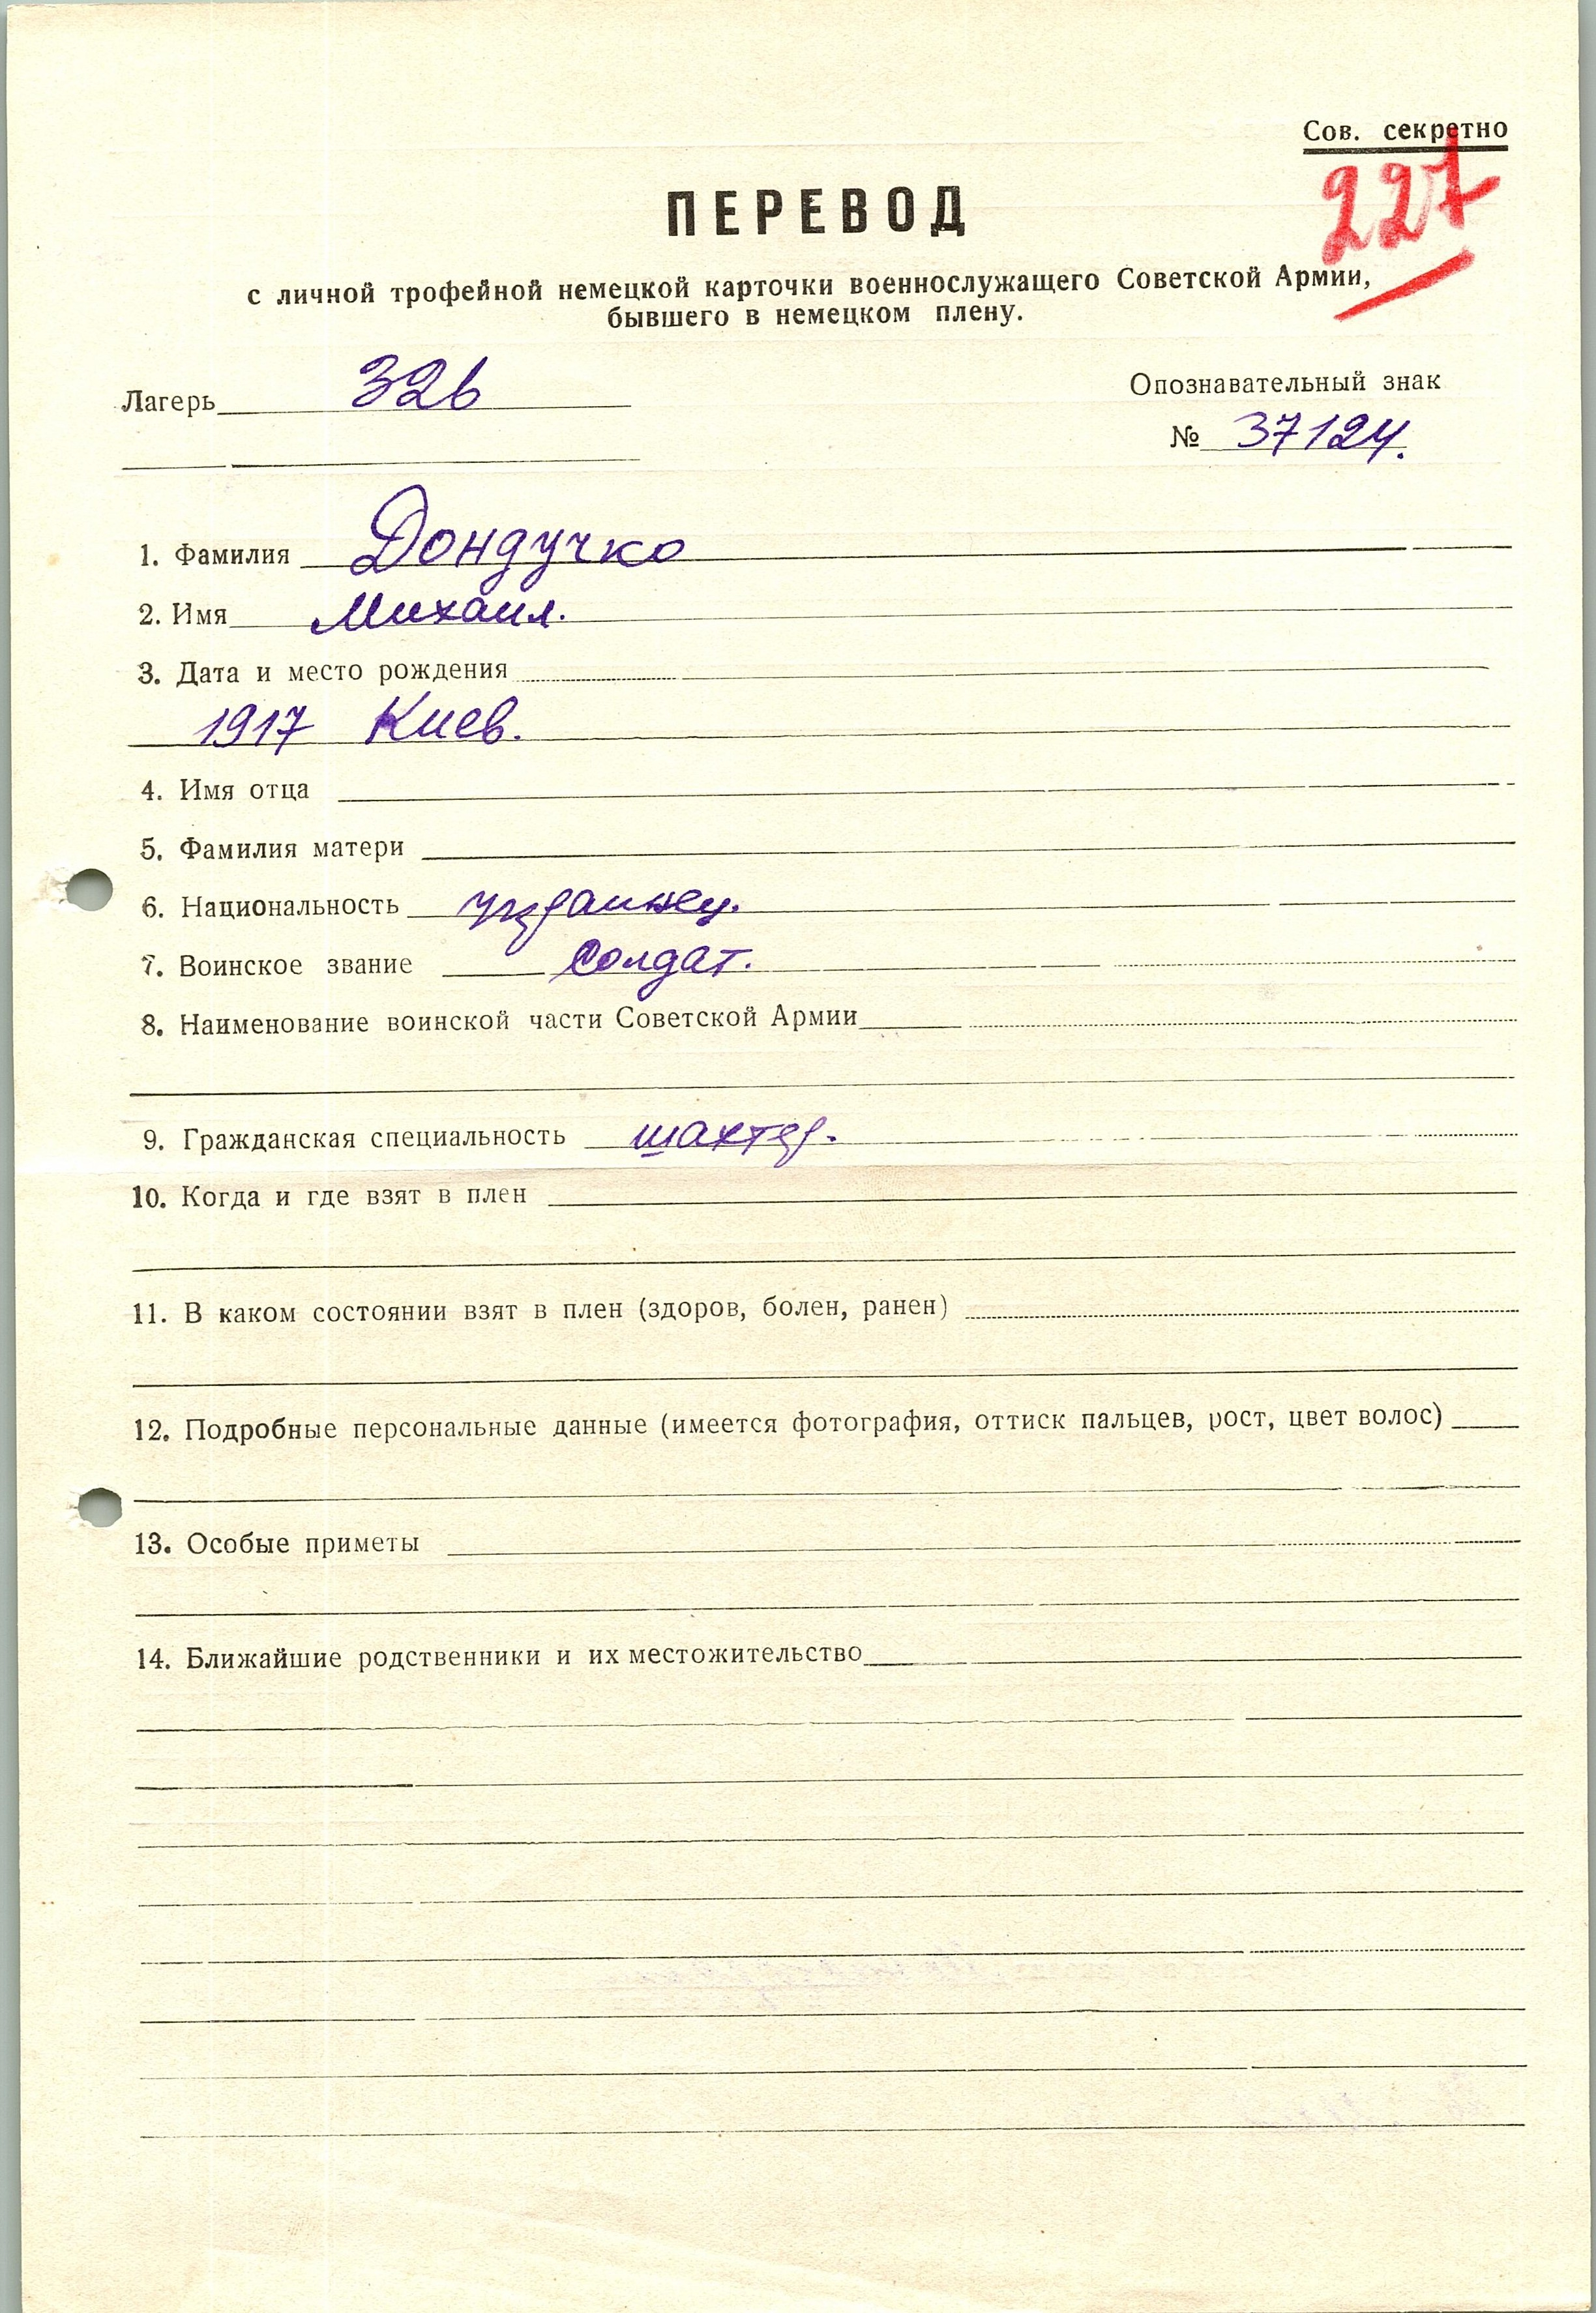 Сов. секретно
227
ПЕРЕВОД
с личной трофейной немецкой карточки военнослужащего Советской Армии,
бывшего в немецком плену.
Лагерь 326
Опознавательный знак
№ 37124.
1. Фамилия Дондучко
2. Имя Михаил.
3. Дата и место рождения
1917 Киев.
4. Имя отца
5. Фамилия матери
6. Национальность украинец.
7. Воинское звание солдат.
8. Наименование воинской части Советской Армии
9. Гражданская специальность шахтер.
10. Когда и где взят в плен
11. В каком состоянии взят в плен (здоров, болен, ранен)
12. Подробные персональные данные (имеется фотография, оттиск пальцев, рост, цвет волос)
13. Особые приметы
14. Ближайшие родственники и их местожительство